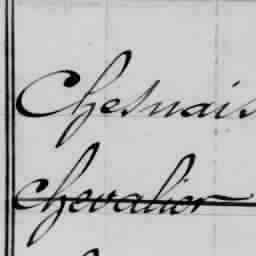 Chesnais
Chevalier